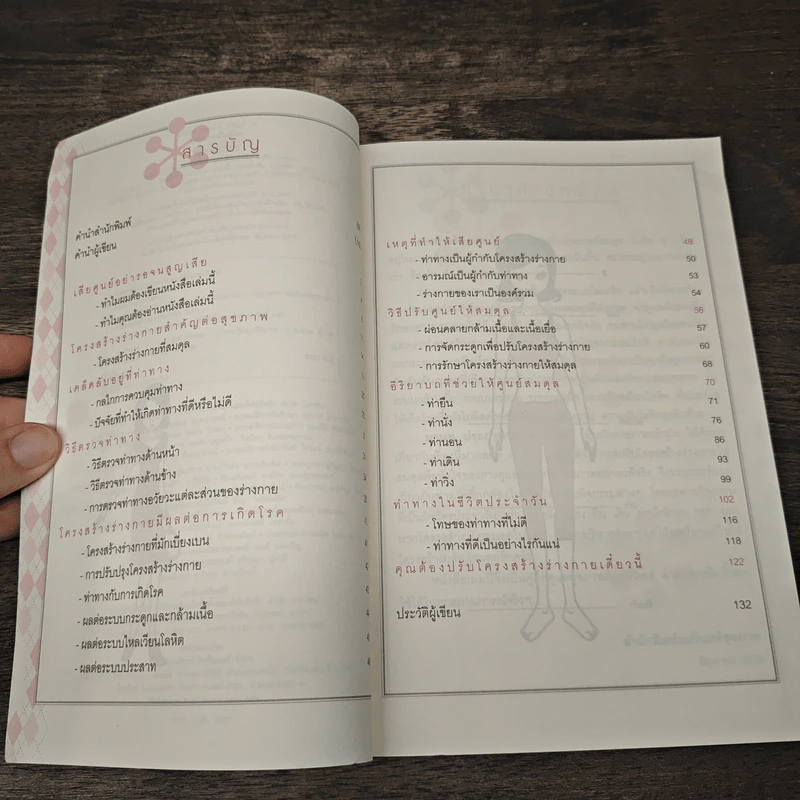 สารบัญ
คำนำสำนักพิมพ์
คำนำผู้เขียน
เสียศูนย์อย่ารอจนสูญเสีย
- ทำไมผมต้องเขียนหนังสือเล่มนี้
- ทำไมคุณต้องอ่านหนังสือเล่มนี้
โครงสร้างร่างกายสำคัญต่อสุขภาพ
- โครงสร้างร่างกายที่สมดุล
เคล็ดลับอยู่ที่ท่าทาง
- กลไกการควบคุมท่าทาง
- ปัจจัยที่ทำให้เกิดท่าทางที่ดีหรือไม่ดี
วิธีตรวจท่าทาง
- วิธีตรวจท่าทางด้านหน้า
- วิธีตรวจท่าทางด้านข้าง
- การตรวจท่าทางอวัยวะแต่ละส่วนของร่างกาย
โครงสร้างร่างกายมีผลต่อการเกิดโรค
- โครงสร้างร่างกายที่มักเบี่ยงเบน
- การปรับปรุงโครงสร้างร่างกาย
- ท่าทางกับการเกิดโรค
- ผลต่อระบบกระดูกและกล้ามเนื้อ
- ผลต่อระบบไหลเวียนโลหิต
- ผลต่อระบบประสาท
เหตุที่ทำให้เสียศูนย์ 48
- ท่าทางเป็นผู้กำกับโครงสร้างร่างกาย 50
- อารมณ์เป็นผู้กำกับท่าทาง 53
- ร่างกายของเราเป็นองค์รวม 54
วิธีปรับศูนย์ให้สมดุล 56
- ผ่อนคลายกล้ามเนื้อและเนื้อเยื่อ 57
- การจัดกระดูกเพื่อปรับโครงสร้างร่างกาย 60
- การรักษาโครงสร้างร่างกายให้สมดุล 68
อิริยาบถที่ช่วยให้ศูนย์สมดุล 70
- ท่ายืน 71
- ท่านั่ง 76
- ท่านอน 86
- ท่าเดิน 93
- ท่าวิ่ง 99
ท่าทางในชีวิตประจำวัน 102
- โทษของท่าทางที่ไม่ดี 116
- ท่าทางที่ดีเป็นอย่างไรกันแน่ 118
คุณต้องปรับโครงสร้างร่างกายเดี๋ยวนี้ 122
ประวัติผู้เขียน 132